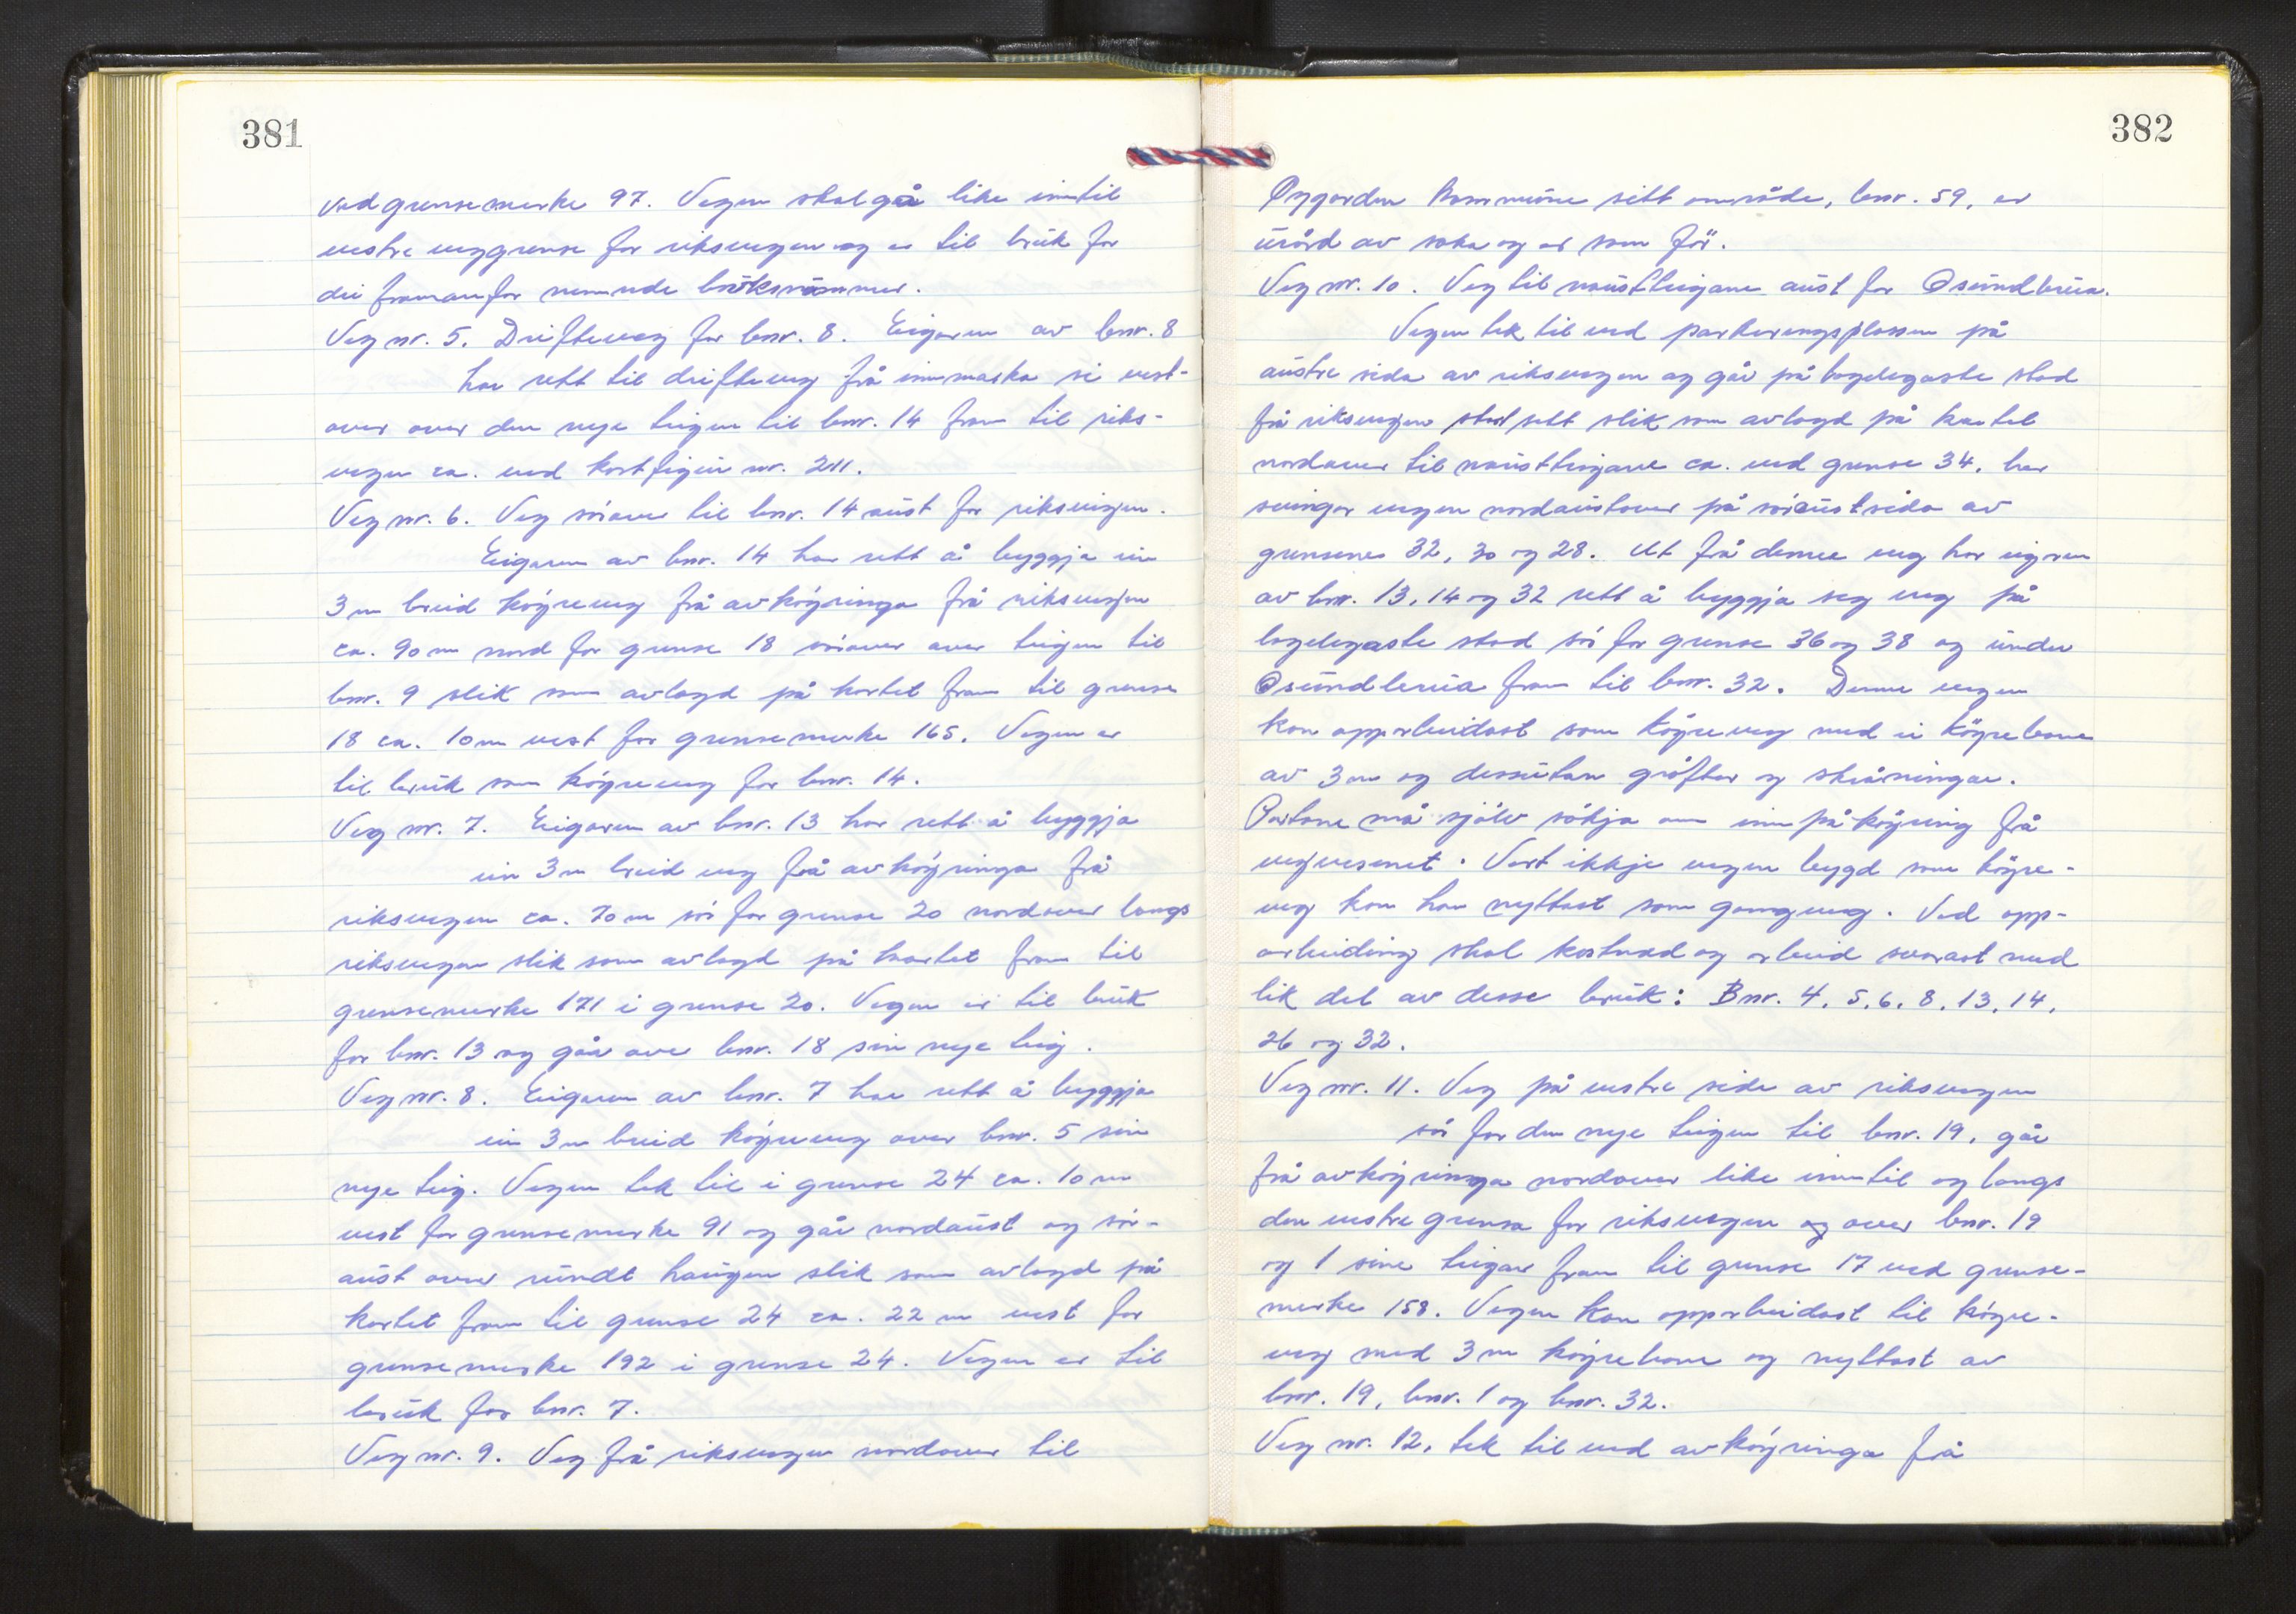 381
ved grensemerke 97. Vegen skal gå like inntil
vestre veggrense for riksvegen og er til bruk for
dei framanfor nemnde bruksnummer.
Veg nr. 5. Drifteveg for bnr. 8. Eigaren av bnr. 8
har rett til drifteveg frå innmarka si vest-
over over den nye teigen til bnr. 14 fram til riks-
vegen ca. ved kartfigur nr. 211.
Veg nr. 6. Veg sørover til bnr. 14 aust for riksvegen.
Eigaren av bnr. 14 har rett å byggja ein
3 m breid køyreveg frå avkøyringa frå riksvegen
ca. 90 m nord for grense 18 sørover over teigen til
bnr. 9 slik som avlagd på kartet fram til grense
18 ca. 10 m vest for grensemerke 165. Vegen er
til bruk som køyreveg for bnr. 14.
Veg nr. 7. Eigaren av bnr. 13 har rett å byggja
ein 3 m breid veg frå avkøyringa frå
riksvegen ca. 70 m sør for grense 20 nordover langs
riksvegen slik som avlagd på kartet fram til
grensemerke 171 i grense 20. Vegen er til bruk
for bnr. 13 og går over bnr. 18 sin nye teig.
Veg nr. 8. Eigaren av bnr. 7 har rett å byggja
ein 3 m breid køyreveg over bnr. 5 sin
nye teig. Vegen tek til i grense 24 ca. 10 m
vest for grensemerke 91 og går nordaust og sør-
aust over rundt haugen slik som avlagd på
kartet fram til grense 24 ca. 22 m vest for
grensemerke 192 i grense 24. Vegen er til
bruk for bnr. 7.
Veg nr. 9. Veg frå riksvegen nordover til
382
Øygarden kommune sitt område, bnr. 59, er
urørd av saka og er som før.
Veg nr. 10. Veg til naustteigane aust for Osundbrua.
Vegen tek til ved parkeringsplassen på
austre sida av riksvegen og går på lagelegaste stad
frå riksvegen stort sett slik som avlagd på kartet
nordover til naustteigane ca. ved grense 34, her
svingar vegen nordaustover på søraustsida av
grensene 32, 30 og 28. Ut frå denne veg har eigaren
av bnr. 13, 14 og 32 rett å byggja seg veg på
lagelegaste stad sør for grense 36 og 38 og under
Osundbrua fram til bnr. 32. Denne vegen
kan opparbeidast som køyreveg med ei køyrebane
av 3 m og dessutan grøfter og skråningar.
Partane må sjølv søkja om innpåkøyring frå
vegvesenet. Vert ikkje vegen bygd som køyre-
veg kan han nyttast som gangveg. Ved opp-
arbeiding skal kostnad og arbeid svarast med
lik del av desse bruk: Bnr. 4, 5, 6, 8, 13, 14,
26 og 32.
Veg nr. 11. Veg på vestre side av riksvegen
sør for den nye teigen til bnr. 19, går
frå avkøyringa nordover like inntil og langs
den vestre grensa for riksvegen og over bnr. 19
og 1 sine teigar fram til grense 17 ved grense-
merke 158. Vegen kan opparbeidast til køyre-
veg med 3 m køyrebane og nyttast av
bnr. 19, bnr. 1 og bnr. 32.
Veg nr. 12, tek til ved avkøyringa frå